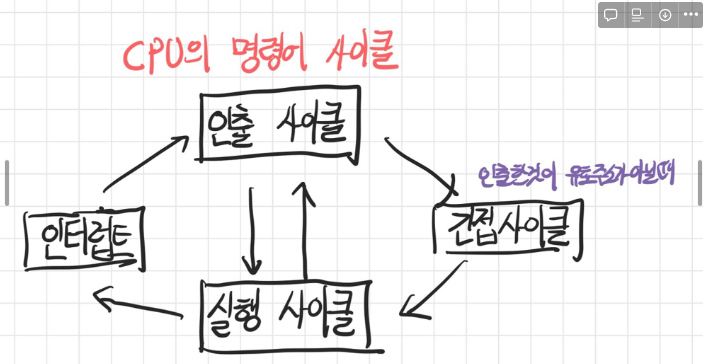 CPU의 명령어 사이클
인출 사이클
인출한것이 유효주소가아닐때
인터럽트
간접사이클
실행 사이클